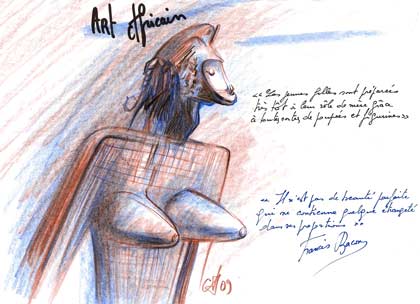 Art Africain
« Les jeunes filles sont préparées
très tôt à leur rôle de mère grâce
à toutes sortes de poupées et figurines »
« Il n'est pas de beauté parfaite
qui ne contienne quelque étrangeté
dans ses proportions »
Francis Bacon
09